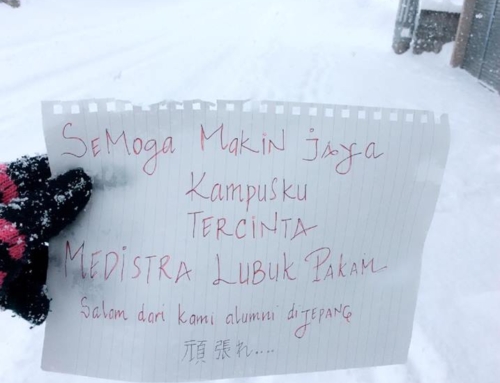 SeMoga MakiN jaya
Kampusku
TERCINTA
MEDiSTRA LUBUK PAKAM
Salam dari kami alumni diJEPANG
頑張れ....